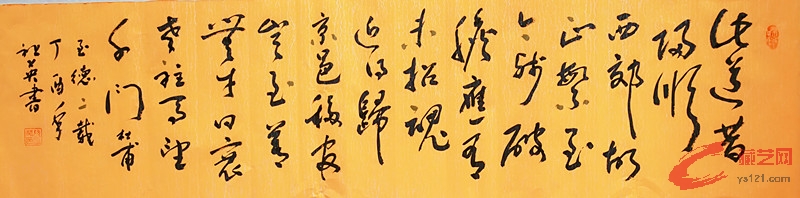 此道昔
歸順
西郊胡
正繁至
今残破
膽應有
未招魂
近得歸
京邑移官
豈至尊
無才日衰
老駐馬望
千门 杜甫
至德二載
丁酉年
英書
藏艺网
ys121.com